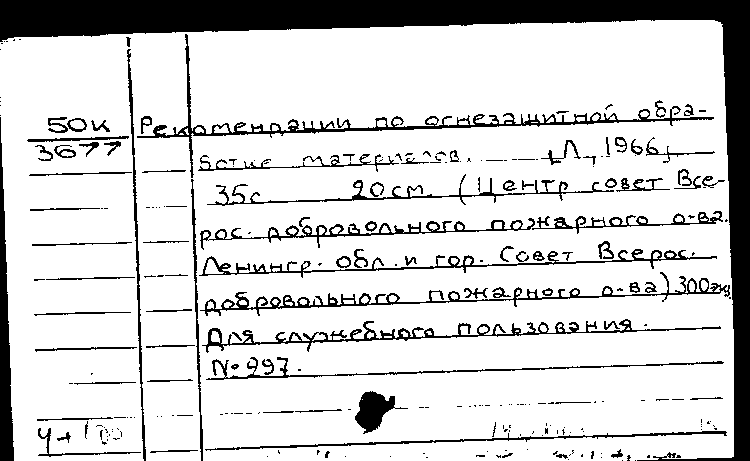 50к
3677
Рекомендации по огнезащитной обра-
ботке материалов. [Л., 1966]
35с. 20см. (Центр совет Все-
рос. добровольного пожарного о-ва.
Ленингр. обл. и гор. Совет Всерос.
добровольного пожарного о-ва) 300экз
Для служебного пользования.
№297.